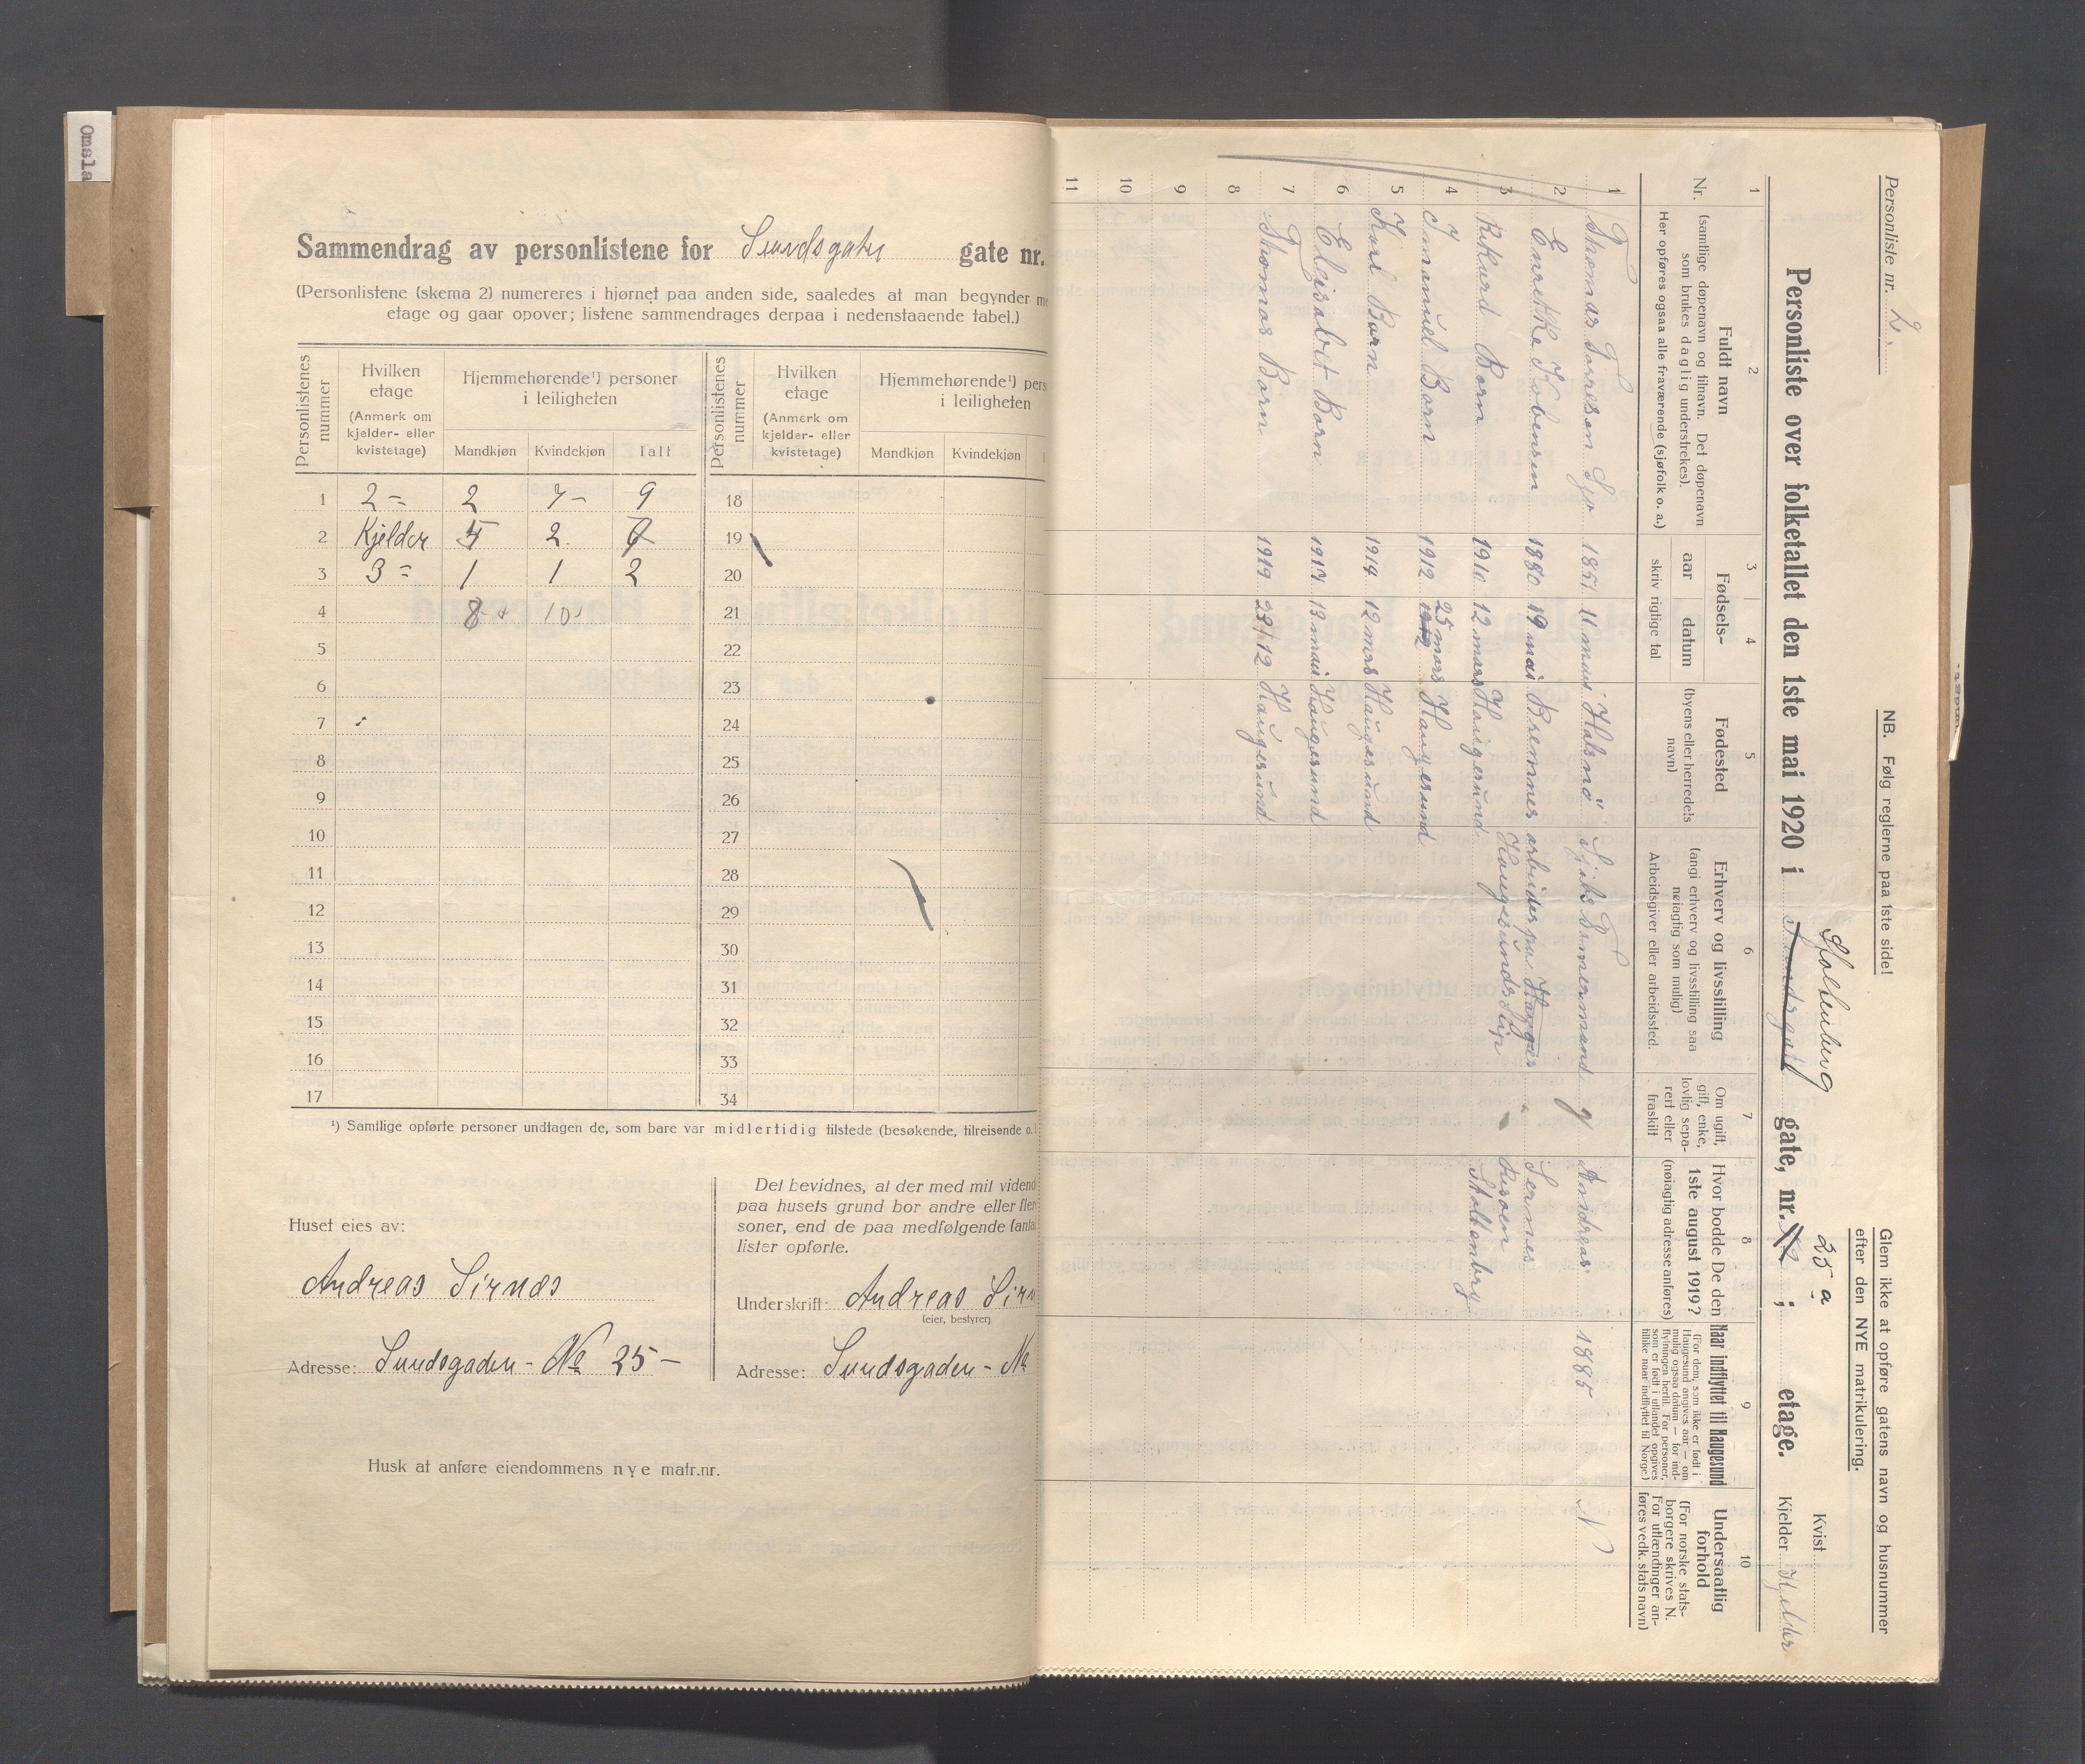 Omsla
Sammendrag av personlistene for Sundsgaten gate nr.
(Personlistene (skema 2) numereres i hjørnet paa anden side, saaledes at man begynder
etage og gaar opover; listene sammendrages derpaa i nedenstaaende tabel.)
Personlistenes nummer | Hvilken etage (Anmerk om kjelder- eller kvistetage) | Hjemmehørende¹) personer i leiligheten | Mandkjøn | Kvindekjøn | Ialt
Personlistenes nummer | Hvilken etage (Anmerk om kjelder- eller kvistetage) | Hjemmehørende¹) pers i leiligheten | Mandkjøn | Kvindekjøn
1 2 = 2 7 - 9 18
2 Kjelder 5 2 19
3 3 = 1 1 2 20
4 8 10 21
5 22
6 23
7 24
8 25
9 26
10 27
11 28
12 29
13 30
14 31
15 32
16 33
17 34
¹) Samtlige opførte personer undtagen de, som bare var midlertidig tilstede (besøkende, tilreisende o.
Huset eies av:
Andreas Sirnes
Adresse: Sundsgaden - No 25 -
Det bevidnes, at der med mit vidend
paa husets grund bor andre eller fler
soner, end de paa medfølgende (anta
lister opførte.
Underskrift: Andreas Sirn
(eier, bestyrer)
Adresse: Sundsgaden - No
Husk at anføre eiendommens nye matr.nr.
Personliste nr. 2.
NB. Følg reglerne paa 1ste side!
Glem ikke at opføre gatens navn og husnummer
efter den NYE matrikulering.
Stoltenberg 25 a
Personliste over folketallet den 1ste mai 1920 i Sundsgate gate, nr. 12 ; etage.
Kvist
Kjelder Kjelder
1 2 3 4 5 6 7 8 9 10
Nr.
Fuldt navn
(samtlige døpenavn og tilnavn. Det døpenavn
som brukes daglig understrekes).
Her opføres ogsaa alle fraværende (sjøfolk o. a.)
Fødsels-
aar datum
skriv rigtige tal
Fødested
(byens eller herredets
navn)
Erhverv og livsstilling
(angi erhverv og livsstilling saa
nøiagtig som mulig)
Arbeidsgiver eller arbeidssted.
Om ugift,
gift, enke,
lovlig sepa-
rert eller
fraskilt
Hvor bodde De den
1ste august 1919?
(nøiagtig adresse anføres)
Naar indflyttet til Haugesund
(For dem, som ikke er født i
Haugesund angives aar — om
mulig ogsaa datum — for ind-
flytningen hertil. For personer,
som er født i utlandet opgives
tillike naar indflyttet til Norge.)
Undersaatlig
forhold
(For norske stats-
borgere skrives N.
For utlændinger an-
føres vedk. stats navn)
1 Thomas Torreson 11 Halsnö Skibs Tømermand g Andreas 1885 N
2 1880 19 mai Bremnes arbeider paa Sernes
Haugesunds Risøen
3 Rikard Born 1910 12 mars Haugesund Stoltenberg
4 Imanuel Born 1912 25 mars Haugesund
5 Karl Born 1914 12 mrs Haugesund
6 Elisabet Born 1917 13 mai Haugesund
7 Thomas Born 1919 23/12 Haugesund
8
9
10
11